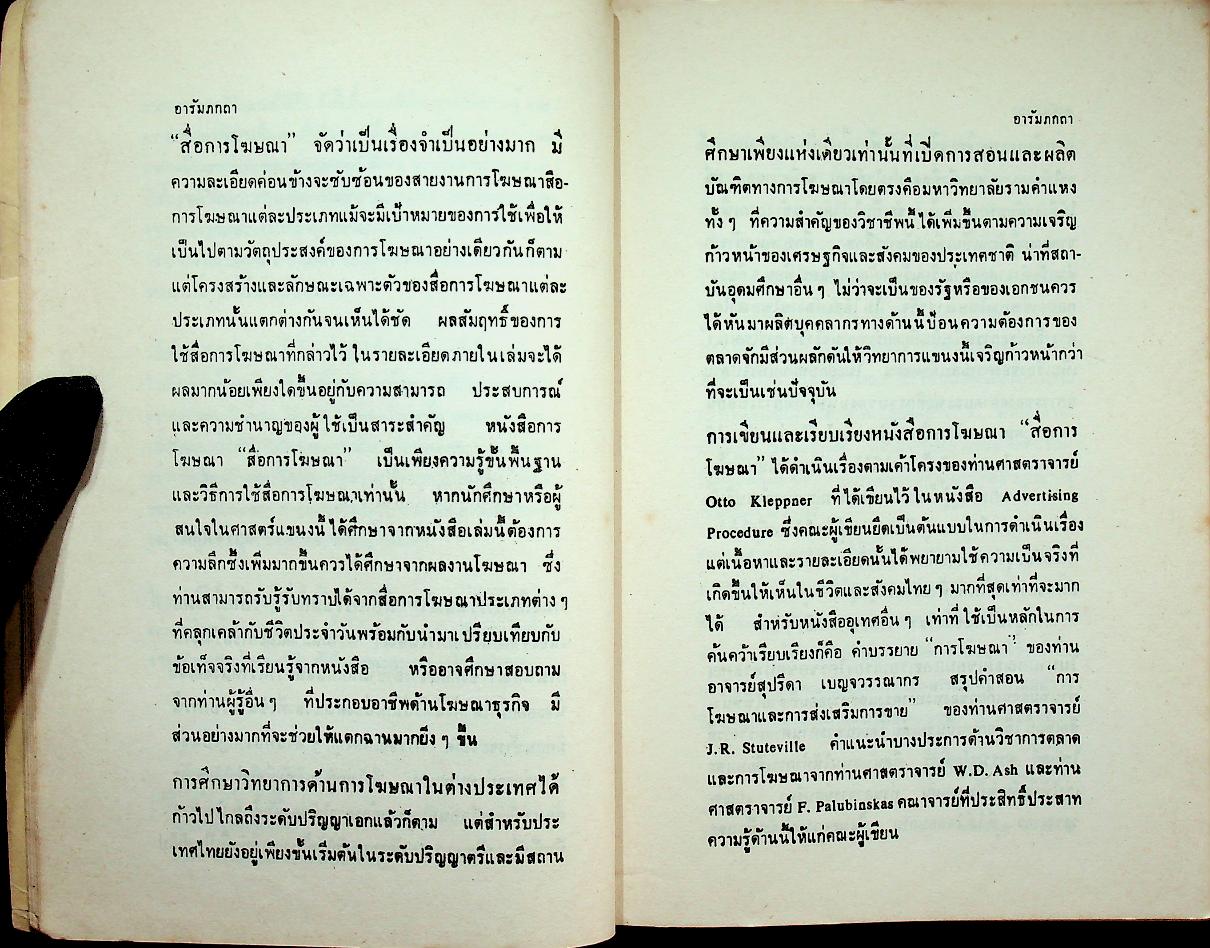 อารัมภกถา
“สื่อการโฆษณา” จัดว่าเป็นเรื่องจำเป็นอย่างมาก มี
ความละเอียดค่อนข้างจะซับซ้อนของสายงานการโฆษณาสื่อ-
การโฆษณาแต่ละประเภทแม้จะมีเป้าหมายของการใช้เพื่อให้
เป็นไปตามวัตถุประสงค์ของการโฆษณาอย่างเดียวกันก็ตาม
แต่โครงสร้างและลักษณะเฉพาะตัวของสื่อการโฆษณาแต่ละ
ประเภทนั้นแตกต่างกันจนเห็นได้ชัด ผลสัมฤทธิ์ของการ
ใช้สื่อการโฆษณาที่กล่าวไว้ ในรายละเอียดภายในเล่มจะได้
ผลมากน้อยเพียงใดขึ้นอยู่กับความสามารถ ประสบการณ์
และความชำนาญของผู้ใช้เป็นสาระสำคัญ หนังสือการ
โฆษณา “สื่อการโฆษณา” เป็นเพียงความรู้ขั้นพื้นฐาน
และวิธีการใช้สื่อการโฆษณาเท่านั้น หากนักศึกษาหรือผู้
สนใจในศาสตร์แขนงนี้ได้ศึกษาจากหนังสือเล่มนี้ต้องการ
ความลึกซึ้งเพิ่มมากขึ้นควรได้ศึกษาจากผลงานโฆษณา ซึ่ง
ท่านสามารถรับรู้รับทราบได้จากสื่อการโฆษณาประเภทต่าง ๆ
ที่คลุกเคล้ากับชีวิตประจำวันพร้อมกับนำมาเปรียบเทียบกับ
ข้อเท็จจริงที่เรียนรู้จากหนังสือ หรืออาจศึกษาสอบถาม
จากท่านผู้รู้อื่น ๆ ที่ประกอบอาชีพด้านโฆษณาธุรกิจ มี
ส่วนอย่างมากที่จะช่วยให้แตกฉานมากยิ่ง ๆ ขึ้น
การศึกษาวิทยาการด้านการโฆษณาในต่างประเทศได้
ก้าวไปไกลถึงระดับปริญญาเอกแล้วก็ตาม แต่สำหรับประ
เทศไทยยังอยู่เพียงขั้นเริ่มต้นในระดับปริญญาตรีและมีสถาน
อารัมภกถา
ศึกษาเพียงแห่งเดียวเท่านั้นที่เปิดการสอนและผลิต
บัณฑิตทางการโฆษณาโดยตรงคือมหาวิทยาลัยรามคำแหง
ทั้ง ๆ ที่ความสำคัญของวิชาชีพนี้ได้เพิ่มขึ้นตามความเจริญ
ก้าวหน้าของเศรษฐกิจและสังคมของประเทศชาติ น่าที่สถา-
บันอุดมศึกษาอื่น ๆ ไม่ว่าจะเป็นของรัฐหรือของเอกชนควร
ได้หันมาผลิตบุคคลากรทางด้านนี้ป้อนความต้องการของ
ตลาดจักมีส่วนผลักดันให้วิทยาการแขนงนี้เจริญก้าวหน้ากว่า
ที่จะเป็นเช่นปัจจุบัน
การเขียนและเรียบเรียงหนังสือการโฆษณา “สื่อการ
โฆษณา” ได้ดำเนินเรื่องตามเค้าโครงของท่านศาสตราจารย์
Otto Kleppner ที่ได้เขียนไว้ในหนังสือ Advertising
Procedure ซึ่งคณะผู้เขียนยึดเป็นต้นแบบในการดำเนินเรื่อง
แต่เนื้อหาและรายละเอียดนั้นได้พยายามใช้ความเป็นจริงที่
เกิดขึ้นให้เห็นในชีวิตและสังคมไทย ๆ มากที่สุดเท่าที่จะมาก
ได้ สำหรับหนังสืออุเทศอื่น ๆ เท่าที่ใช้เป็นหลักในการ
ค้นคว้าเรียบเรียงก็คือ คำบรรยาย “การโฆษณา” ของท่าน
อาจารย์สุปรีดา เบญจวรรณากร สรุปคำสอน “การ
โฆษณาและการส่งเสริมการขาย” ของท่านศาสตราจารย์
J.R. Stuteville คำแนะนำบางประการด้านวิชาการตลาด
และการโฆษณาจากท่านศาสตราจารย์ W.D. Ash และท่าน
ศาสตราจารย์ F. Palubinskas คณาจารย์ที่ประสิทธิ์ประสาท
ความรู้ด้านนี้ให้แก่คณะผู้เขียน